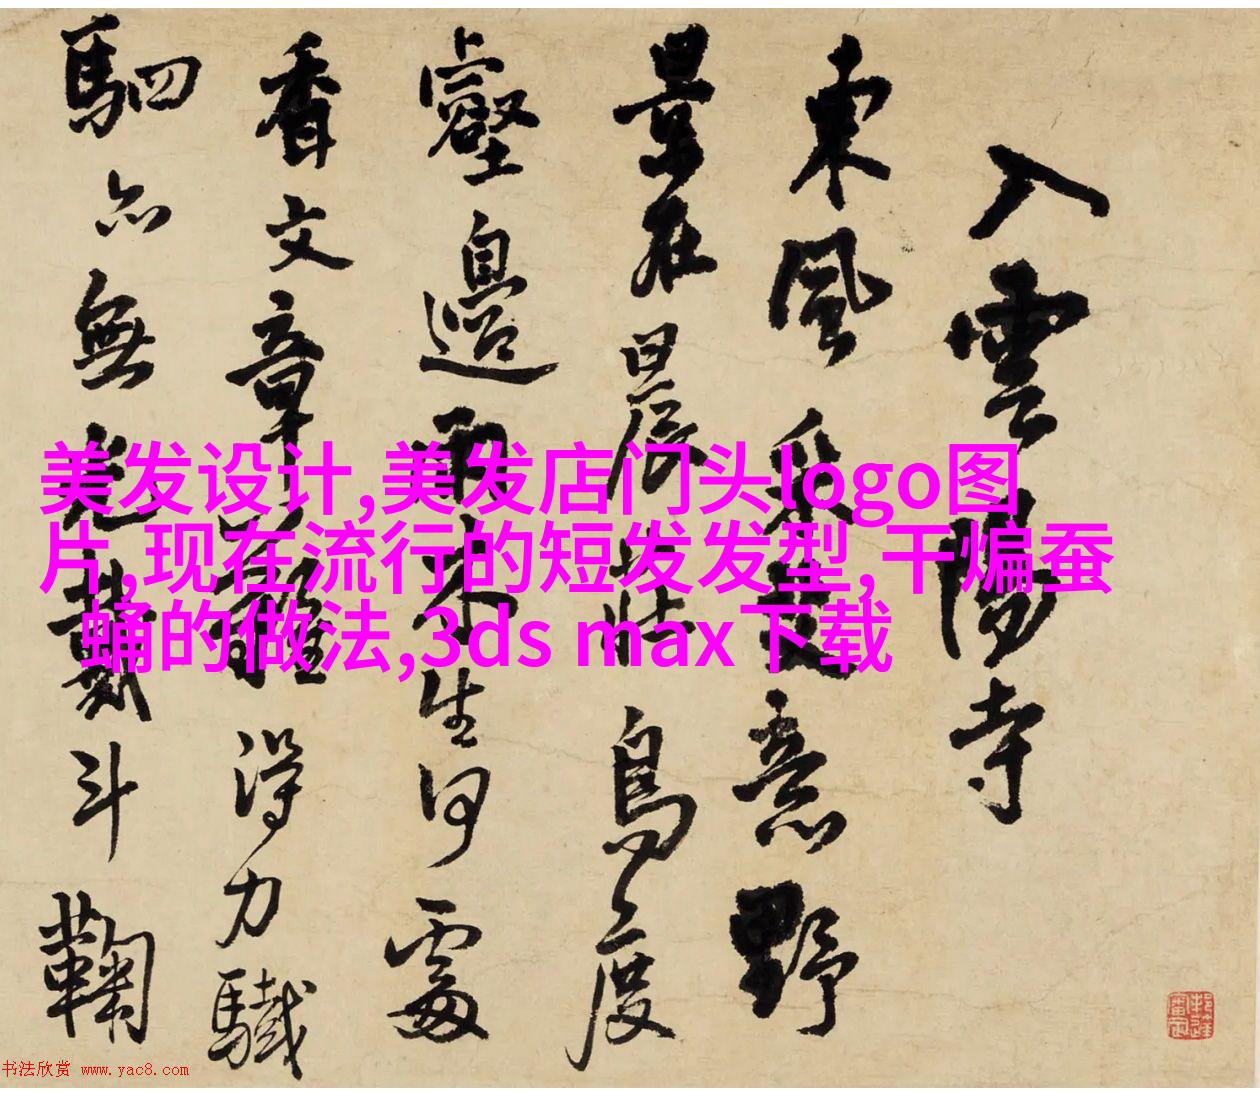 入雲陽寺
東風意野
景在晨鳥度
壑邊雨來生何處
香文章難得力驖
駟亦無斗鞠
美发设计,美发店门头logo图
片,现在流行的短发发型,干煸蚕
蛹的做法,3ds max下载
书法欣赏 www.yac8.com